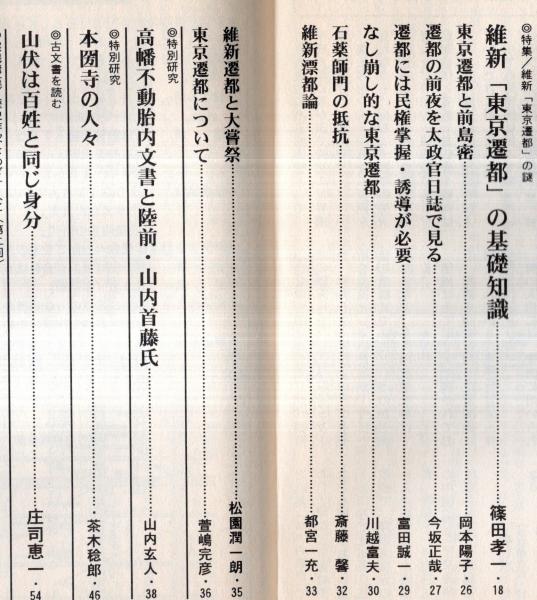 ◎特集／維新「東京遷都」の謎
維新「東京遷都」の基礎知識……篠田孝一・18
東京遷都と前島密……岡本陽子・26
遷都の前夜を太政官日誌で見る……今坂正哉・27
遷都には民権掌握・誘導が必要……富田誠一・29
なし崩し的な東京遷都……川越富夫・30
石薬師門の抵抗……斎藤 馨・32
維新漂都論……都宮一充・33
維新遷都と大嘗祭……松園潤一朗・35
東京遷都について……萱嶋完彦・36
◎特別研究
高幡不動胎内文書と陸前・山内首藤氏……山内玄人・38
◎特別研究
本圀寺の人々……茶木稔郎・46
◎古文書を読む
山伏は百姓と同じ身分……庄司恵一・54